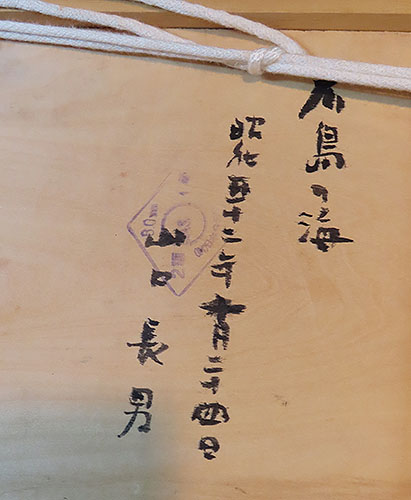 島の海
昭和五十二年十月二十四日
山口長男